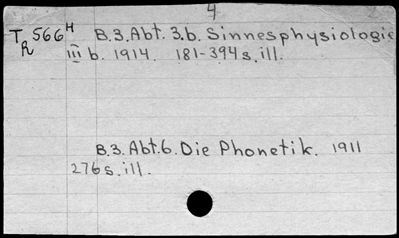 4
TR 566 H B.3.Abt. 3.b. Sinnesphysiologie
III b. 1914. 181-394 s. ill.
B.3.Abt.6. Die Phonetik. 1911
276 s. ill.